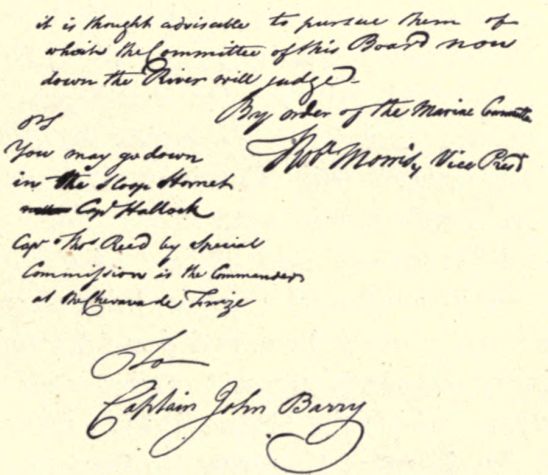 it is thought adviseable to pursue them of
which the Committee of this Board now
down the River will judge.
By order of the Marine Committee
Robt Morris, Vice Presd
PS
You may go down
in the Sloop Hornet
Capt Hallock
Capt Thos Read by Special
Commission is the Commander
at the Chevaux de Frize
To
Captain John Barry